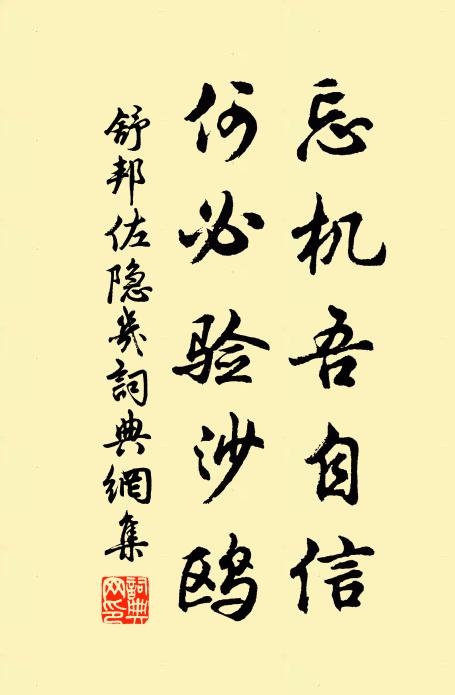 忘机吾自信
何必验沙鸥
舒邦佐隐几詞典網集
詞典网印